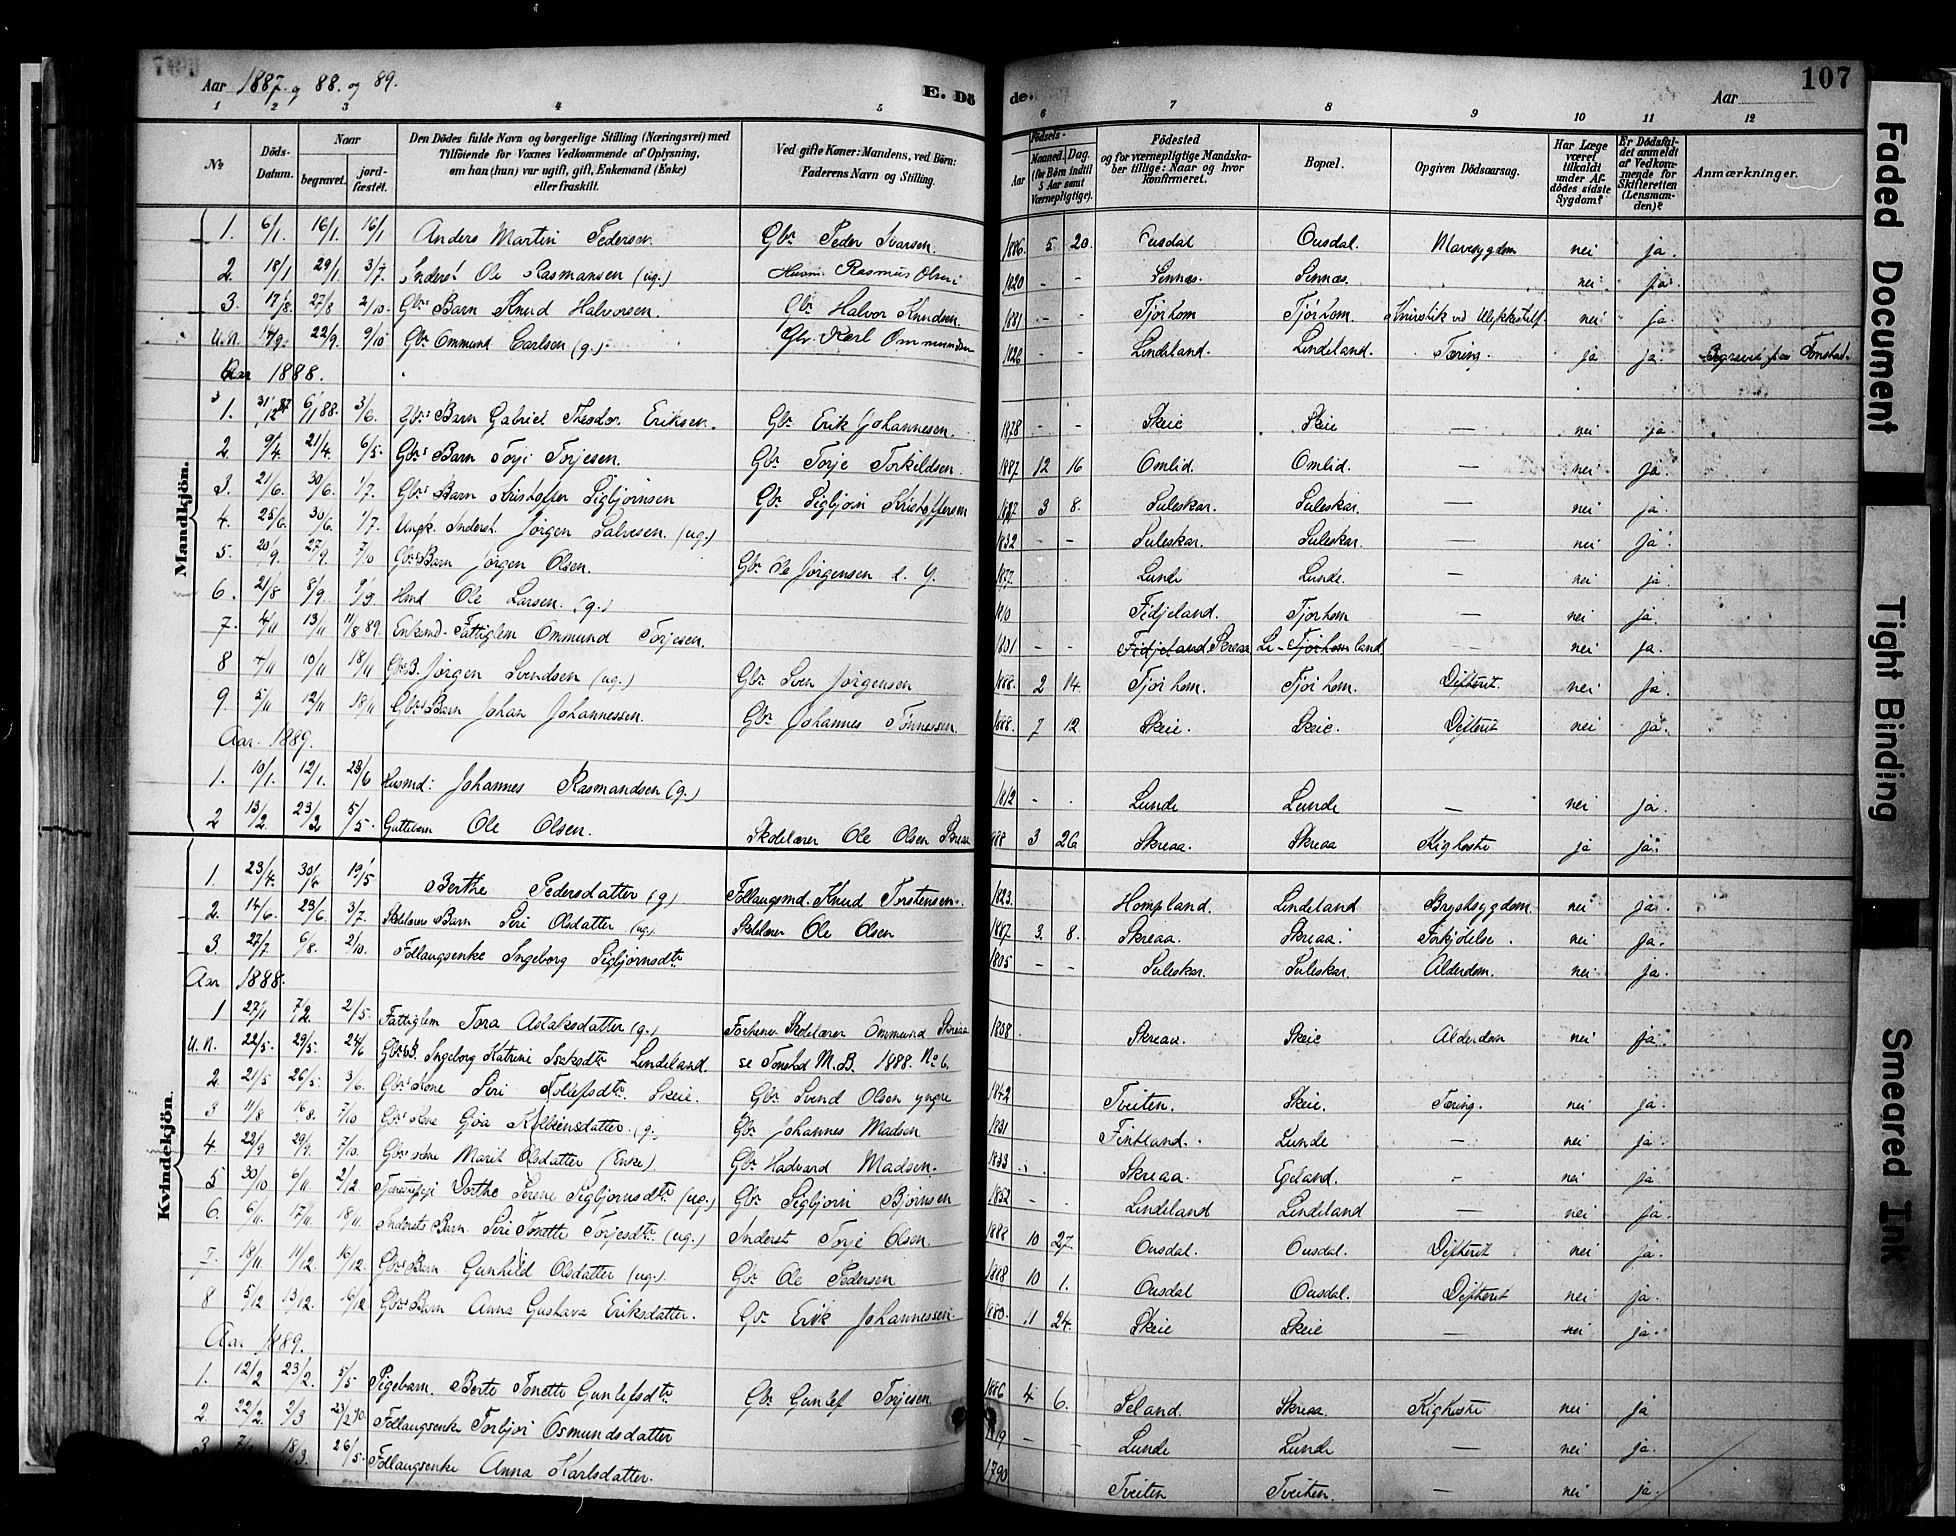 Aar 1887 og 88. og 89.
E. Dö
de.
Aar
107
1 2 3 4 5 6 7 8 9 10 11 12
No
Döds-Datum.
Naar
begravet.
jord-fæstet.
Den Dödes fulde Navn og borgerlige Stilling (Næringsvei) med Tilföiende for Voxnes Vedkommende af Oplysning, om han (hun) var ugift, gift, Enkemand (Enke) eller fraskilt.
Ved gifte Koner: Mandens, ved Börn: Faderens Navn og Stilling.
Födsels-
Aar
Maaned. Dag.
(for Börn indtil 5 Aar samt Værnepligtige).
Födested og for værnepligtige Mandskaber tillige: Naar og hvor konfirmeret.
Bopæl.
Opgiven Dödsaarsag.
Har Læge været tilkaldt under Afdödes sidste Sygdom?
Er Dödsfaldet anmeldt af Vedkommende for Skifteretten (Lensmanden)?
Anmærkninger.
Mandkjön.
1. 6/1. 16/1. 16/1 Anders Martin Pedersen Gbr. Peder Ivarsen. 1886. 5 20. Ousdal Ousdal. Mavesygdom nei ja.
2. 18/1 29/1. 3/7. Inderst Ole Rasmansen (ug.) Husm. Rasmus Olsen 1820 - - Sinnæs. Sinnæs. nei ja.
3. 17/8. 27/8 2/10. Gbrs Barn Knud Halvorsen. Gbr. Halvor Knudsen. 1881 - - Tjørhom Tjørhom. nei ja.
U.N. 14/9. 22/9. 9/10 Gbr. Ommund Carlsen (g.) Gbr. Karl Ommundsen 1826 - - Lindeland. Lindeland. Tæring. ja ja. Begravet paa Tonstad.
Aar 1888.
1. 31/12 87 6/1 88. 3/6. Gbrs Barn Gabriel Theodor Eriksen. Gbr. Erik Johannesen. 1878 - - Skeie Skeie — nei ja
2. 9/4. 21/4. 6/5. Gbrs Barn Torje Torjesen. Gbr. Torje Torkildsen 1887 12 16 Omlid. Omlid. — nei ja.
3. 21/6. 30/6. 1/7. Gbrs Barn Kristoffer Sigbjørnsen Gbr. Sigbjørn Kristoffersen 1887 3 8. Suleskar. Suleskar. — nei ja.
4. 25/6. 30/6. 1/7. Ungk. Inderst Jørgen Salvesen. (ug.) 1832 - - Suleskar. Suleskar. — nei ja.
5. 20/9. 27/9. 7/10 Gbrs Barn Jørgen Olsen. Gbr. Ole Jørgensen d. y. Lunde Lunde. — nei ja.
6. 21/8 8/9. 9/9 Hmd Ole Larsen. (g.) Fidjeland. Tjorhom — nei ja.
7. 4/11 13/11 11/8 89. Enkmd. Fattiglem Ommund Torjesen. 1801 - - Fidjeland. Skreaa Li - Tjørhom land. — nei ja.
8 4/11 10/11 18/11 Gbrs B. Jørgen Svendsen (ug.) Gbr. Sven Jørgensen 1888. 2 14. Tjørhom. Tjørhom. Difterit. nei ja.
9. 5/11 12/11 18/11 Gbrs Barn Johan Johannessen. Gbr. Johannes Tønnessen. 1888. 7 12. Skeie. Skeie. Difterit nei ja.
Aar. 1889.
1. 10/1. 12/1. 23/6 Husmd: Johannes Rasmandsen (g.) 1812 - - Lunde Lunde — nei ja.
2 13/2. 23/2 5/5. Guttebarn Ole Olsen. Skolelærer Ole Olsen Skreaa 3 26 Skreaa. Skreaa Kighoste ja ja.
Kvindekjön.
1. 23/4. 30/4 19/5 Berthe Pedersdatter (g) Follaugsmd. Knud Torstensen. 1823. Hompland. Lindeland Brystsygdom. nei ja.
2. 14/6. 23/6. 3/7. Skolelærers Barn Siri Olsdatter (ug.) Skolelærer Ole Olsen 1887 3. 8. Skreaa. Skreaa. Forkjølelse. nei ja.
3. 27/7. 6/8. 2/10. Follaugsenke Ingeborg Sigbjørnsdtr. 1805 - - Suleskar. Suleskar. Alderdom. nei ja.
Aar 1888.
1 27/1 7/2. 2/5. Fattiglem Tora Aslaksdatter (g.) Forhenv. Skolelærer Ommund Skreaa 1808. Skreaa. Skeie Alderdom nei ja.
U.N. 22/5. 29/5. 24/6 Gbrs B. Ingeborg Katrine Isaksdtr. Lindeland. se Tonstad M.B. 1888. No 6.
2. 21/5 26/5. 3/6. Gbrs Kone Siri Tollefsdtr. Skeie. Gbr. Svend Olsen yngre 1842 Tveiten. Skeie. Tæring. nei ja.
3 11/8 16/8. 7/10 Gbrs Kone Gjøa Kolbeinsdatter. (g. Gbr. Johannes Madsen 1831 Fintland. Lunde — nei ja
4 22/9 29/9. 7/10. Gbrs Kone Marit Olsdatter (Enke) Gbr. Hadvard Madsen. 1833 Skreaa. Egeland. - nei ja
5 30/10 6/11. 2/12 Dorthe Serine Sigbjørnsdtr. (ug.) Gbr. Sigbjørn Bjørnsen 1852 - - Lindeland Lindeland — nei ja.
6. 6/11. 17/11. 18/11. Indersts Barn. Siri Tonette Torjesdtr. (ug.) Inderst Torje Olsen 1888 10 27. Ousdal. Ousdal. Difterit nei ja.
7. 18/11 11/12. 16/12. Gbrs Barn Gunhild Olsdatter (ug.) Gbr. Ole Pedersen 1888 10 1. Ousdal Ousdal. Difterit nei ja.
8 5/12 13/12. 16/12 Gbrs Barn Anna Gustava Eriksdatter. Gbr. Erik Johannessen. 1880. 11 24. Skeie Skeie — nei ja.
Aar 1889.
1. 12/2 23/2. 5/5 Pigebarn. Berte Tonette Gunlefsdtr. Gbr. Gunlef Torjesen. 1886 4 6. Seland. Skreaa. Kighoste nei ja
2. 22/2. 2/3 23/2 90. Follaugsenke Torbjør Osmundsdatter - - Lunde Lunde — nei ja.
3 18/3. 26/5. Follaugsenke Anna Karlsdatter. 1790 Tveiten Tveiten. — nei ja.
Faded Document
Tight Binding
Smeared Ink